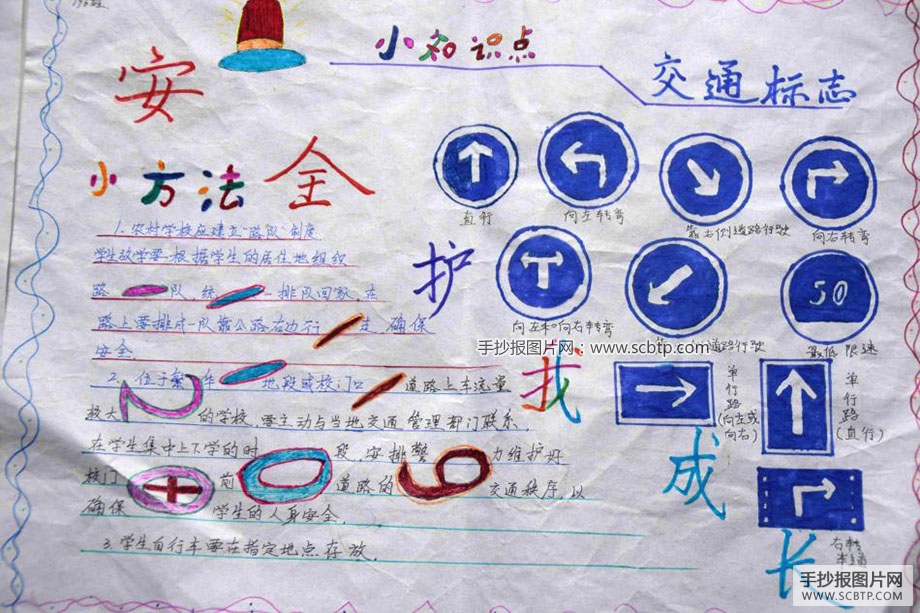 小知识点
交通标志
安全
小方法
护我成长
1. 农村学校应建立"路队"制度
学生放学要根据学生的居住地组织
路队，统一排队回家，在
路上要排成一队靠公路右边行走，确保
安全
2. 位于繁华地段或校门口道路上车流量
较大的学校，要主动与当地交通管理部门联系，
在学生集中上下学的时段，安排警力维护好
校门前道路的交通秩序，以
确保学生的人身安全．
3. 学生自行车要在指定地点存放．
直行
向左转弯
靠右侧道路行驶
向右转弯
向左和向右转弯
道路行驶
50
最低限速
单行路（向左或向右）
单行路（直行）
右转
手抄报图片网：www.scbtp.com
手抄报图片网
WWW.SCBTP.COM